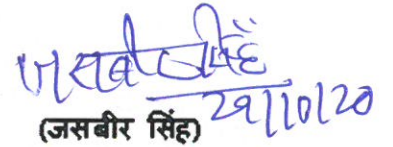 जसबीर सिंह
29/10/20
(जसबीर सिंह)